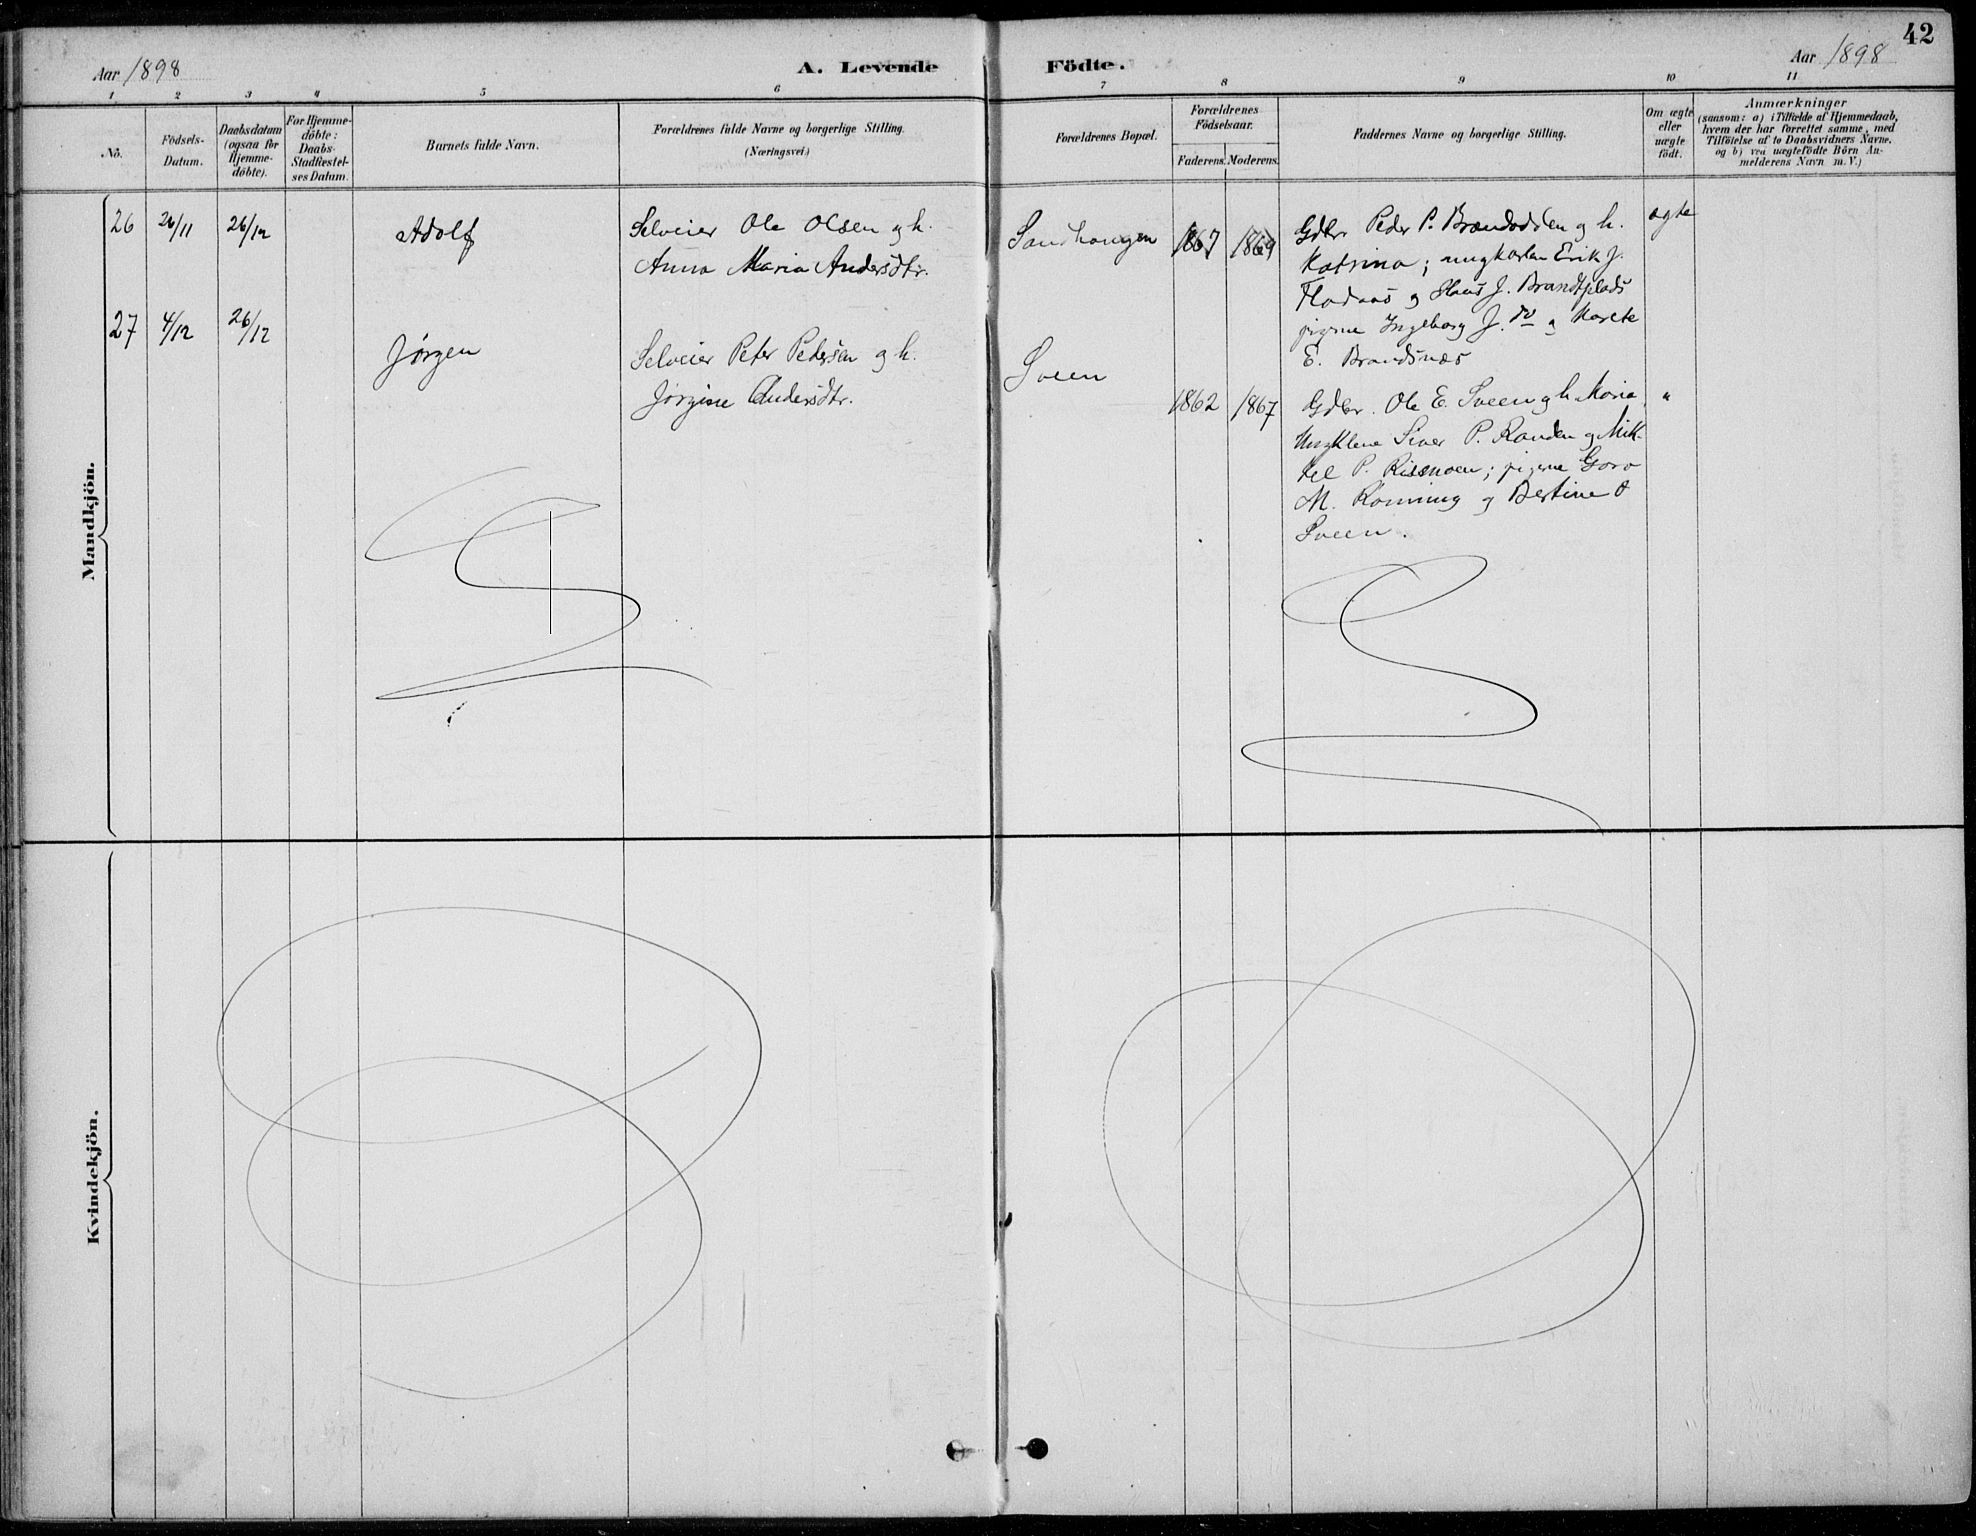 42
Aar 1898
A. Levende Födte.
Aar 1898
1 2 3 4 5 6 7 8 9 10 11
No.
Födsels-
Datum.
Daabsdatum
(ogsaa for
Hjemme-
döbte).
For Hjemme-
döbte:
Daabs-
Stadfæstel-
ses Datum.
Barnets fulde Navn.
Forældrenes fulde Navne og borgerlige Stilling.
(Næringsvei.)
Forældrenes Bopæl.
Forældrenes
Födselsaar.
Faderens. Moderens.
Faddernes Navne og borgerlige Stilling.
Om ægte
eller
uægte
født.
Anmærkninger
(saasom: a) i Tilfælde af Hjemmedaab,
hvem der har forrettet samme, med
Tilföielse af to Daabsvidners Navne,
og b) ved uægtefödte Börn An-
melderens Navn m. V.)
Mandkjön.
26 26/11 26/12 Adolf
Selveier Ole Olsen og h.
Anna Maria Andersdtr.
Sandhaugen
1867 1869
Gdbr Peder P. Brændodden og h.
Katrina; ungkarlene Erik J.
Fladaas og Hans J. Brandtplads
pigerne Ingeborg J. do og Marete
E. Brandsnæs
ægte
27 4/12 26/12 Jørgen
Selveier Peter Pedersen og h.
Jørgine Andersdtr.
Sveen
1862 1867
Gdbr. Ole E. Sveen og h. Maria,
Ungklene Siver P. Randen og Mik-
kel P. Risemoen; pigerne Goro
M. Rønning og Bertine O
Sveen.
"
Kvindekjön.